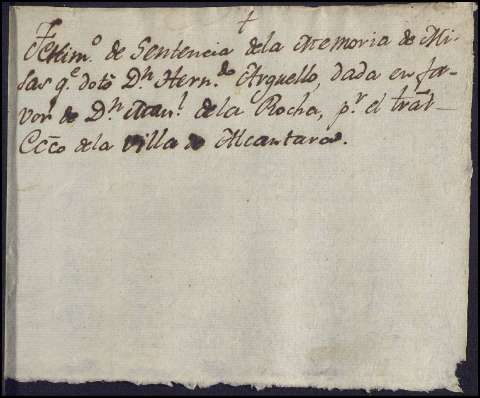 Testim.º de Sentencia dela Memoria de Mi-
sas q.e dotó D.n Hern.do Arguello, dada en fa-
vor de D.n Man.l dela Rocha, p.r el trãl
Ecc.co dela villa de Alcantara.